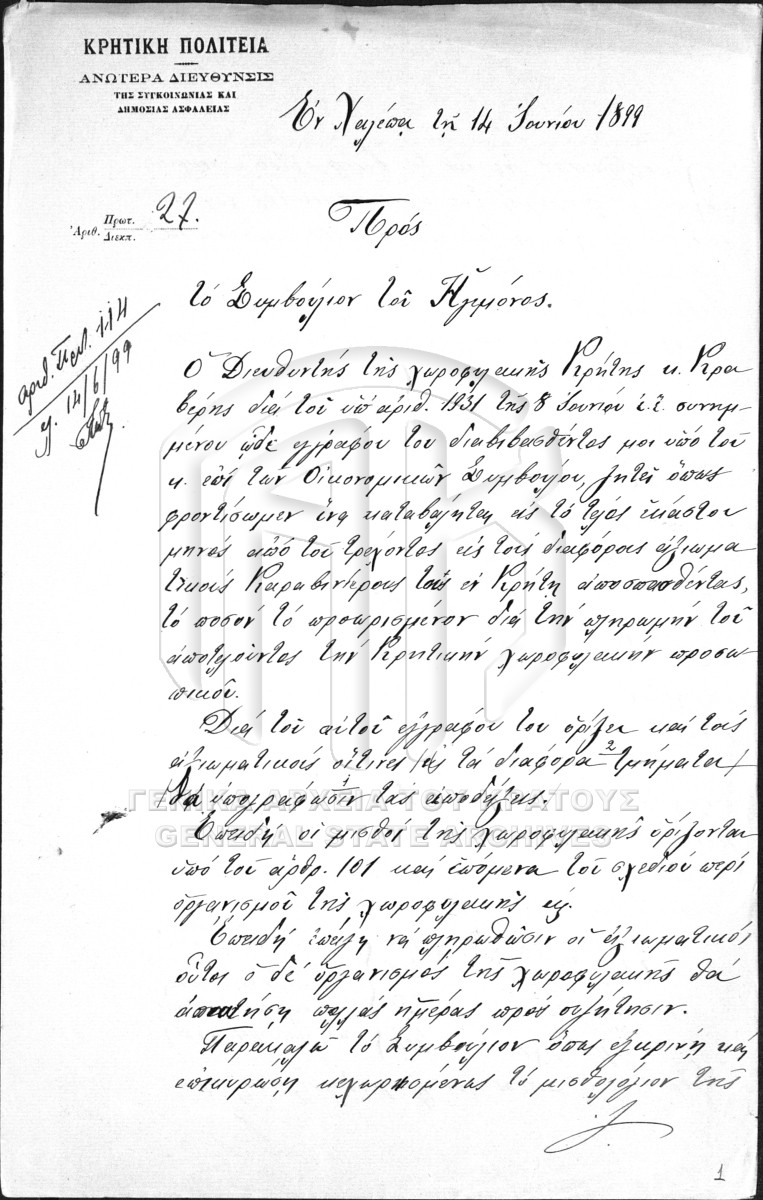 ΚΡΗΤΙΚΗ ΠΟΛΙΤΕΙΑ
ΑΝΩΤΕΡΑ ΔΙΕΥΘΥΝΣΙΣ
ΤΗΣ ΣΥΓΚΟΙΝΩΝΙΑΣ ΚΑΙ
ΔΗΜΟΣΙΑΣ ΑΣΦΑΛΕΙΑΣ
Ἐν Χαλέπᾳ τῇ 14 Ἰουνίου 1899
Ἀριθ. Πρωτ. Διεκπ. 27.
Πρός
τό Συμβούλιον τοῦ Ἡγεμόνος.
αριθ. Πρωτ. 114
14/6/99
Ὁ Διευθυντής τῆς χωροφυλακῆς Κρήτης κ. Κρα
βέρης διά τοῦ ὑπ' ἀριθ. 1931 τῆς 8 Ἰουνίου ἐ.ἔ. συνημ
μένου ὧδε ἐγγράφου του διαβιβασθέντος μοι ὑπό τοῦ
κ. ἐπί των Οἰκονομικῶν Συμβούλου, ζητεῖ ὅπως
φροντίσωμεν ἵνα καταβάληται εἰς τό τέλος ἑκάστου
μηνός ἀπό τοῦ τρέχοντος εἰς τούς διαφόρους ἀξιωμα
τικούς Καραβινιέρους τούς ἐν Κρήτῃ ἀποσπασθέντας,
τό ποσόν τό προωρισμένον διά τήν πληρωμήν τοῦ
ἀποτελοῦντος τήν Κρητικήν χωροφυλακήν προσω
πικοῦ.
Διά τοῦ αὐτοῦ ἐγγράφου του ὁρίζει καί τούς
ἀξιωματικούς οἵτινες εἰς τά διάφορα 2 τμήματα
1 νά ὑπογράφωσιν τάς ἀποδείξεις.
Ἐπειδή οἱ μισθοί τῆς χωροφυλακῆς ὁρίζονται
ὑπό τοῦ ἄρθρ. 101 καί ἑπόμενα τοῦ σχεδίου περί
ὀργανισμοῦ τῆς χωροφυλακῆς
Ἐπειδή ἐπείγει νά πληρωθῶσιν οἱ ἀξιωματικοί
οὗτοι ὁ δέ ὀργανισμός τῆς χωροφυλακῆς θά
ἀπαιτήσῃ πολλάς ἡμέρας πρός συζήτησιν.
Παρακαλῶ τό Συμβούλιον ὅπως ἐγκρίνῃ καί
ἐπικυρώσῃ κεχωρισμένως τό μισθολόγιον τῆς
ΓΕΝΙΚΑ ΑΡΧΕΙΑ ΤΟΥ ΚΡΑΤΟΥΣ
GENERAL STATE ARCHIVES
1